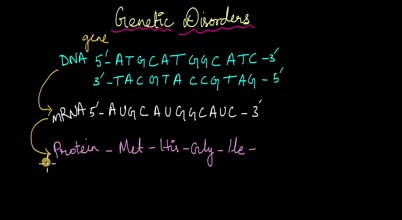 Genetic Disorders
gene
DNA 5'-ATGCATGGCATC-3'
3'-TACGTACCGTAG-5'
mRNA 5'-AUGCAUGGCAUC-3'
Protein - Met - His - Gly - Ile -